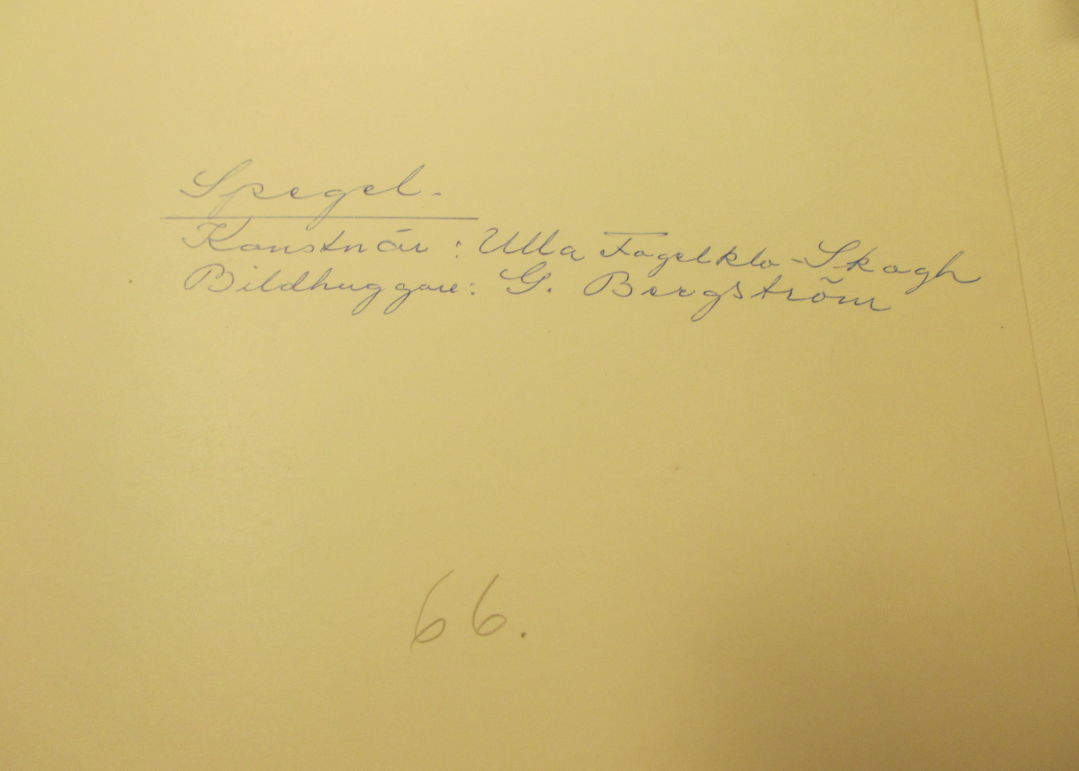 Spegel.
Konstnär: Ulla Fogelklo-Skogh
Bildhuggare: G. Bergström
66.